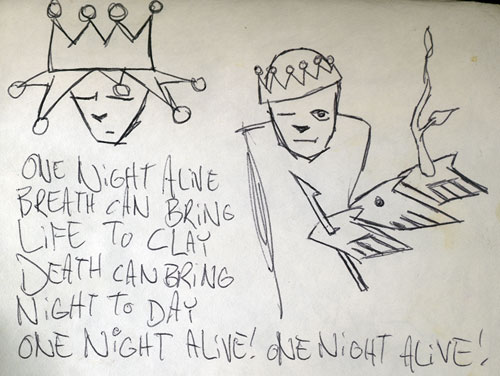 ONE NIGHT ALIVE
BREATH CAN BRING
LIFE TO CLAY
DEATH CAN BRING
NIGHT TO DAY
ONE NIGHT ALIVE! ONE NIGHT ALIVE!